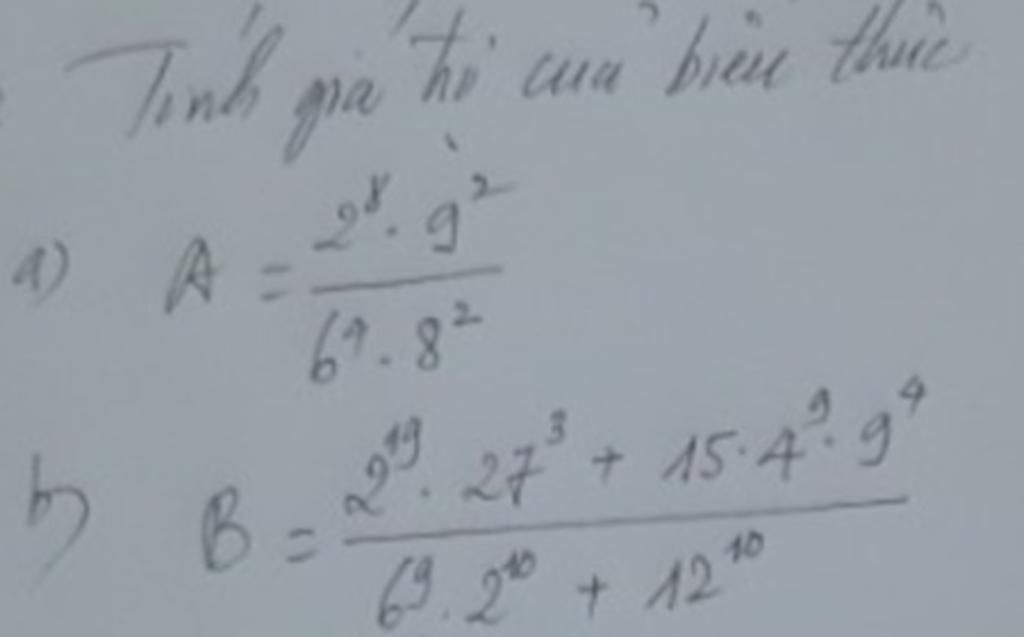 Tính giá trị của biểu thức
a) A = \frac{2^8 \cdot 9^2}{6^4 \cdot 8^2}
b) B = \frac{2^{19} \cdot 27^3 + 15 \cdot 4^9 \cdot 9^4}{6^9 \cdot 2^{10} + 12^{10}}